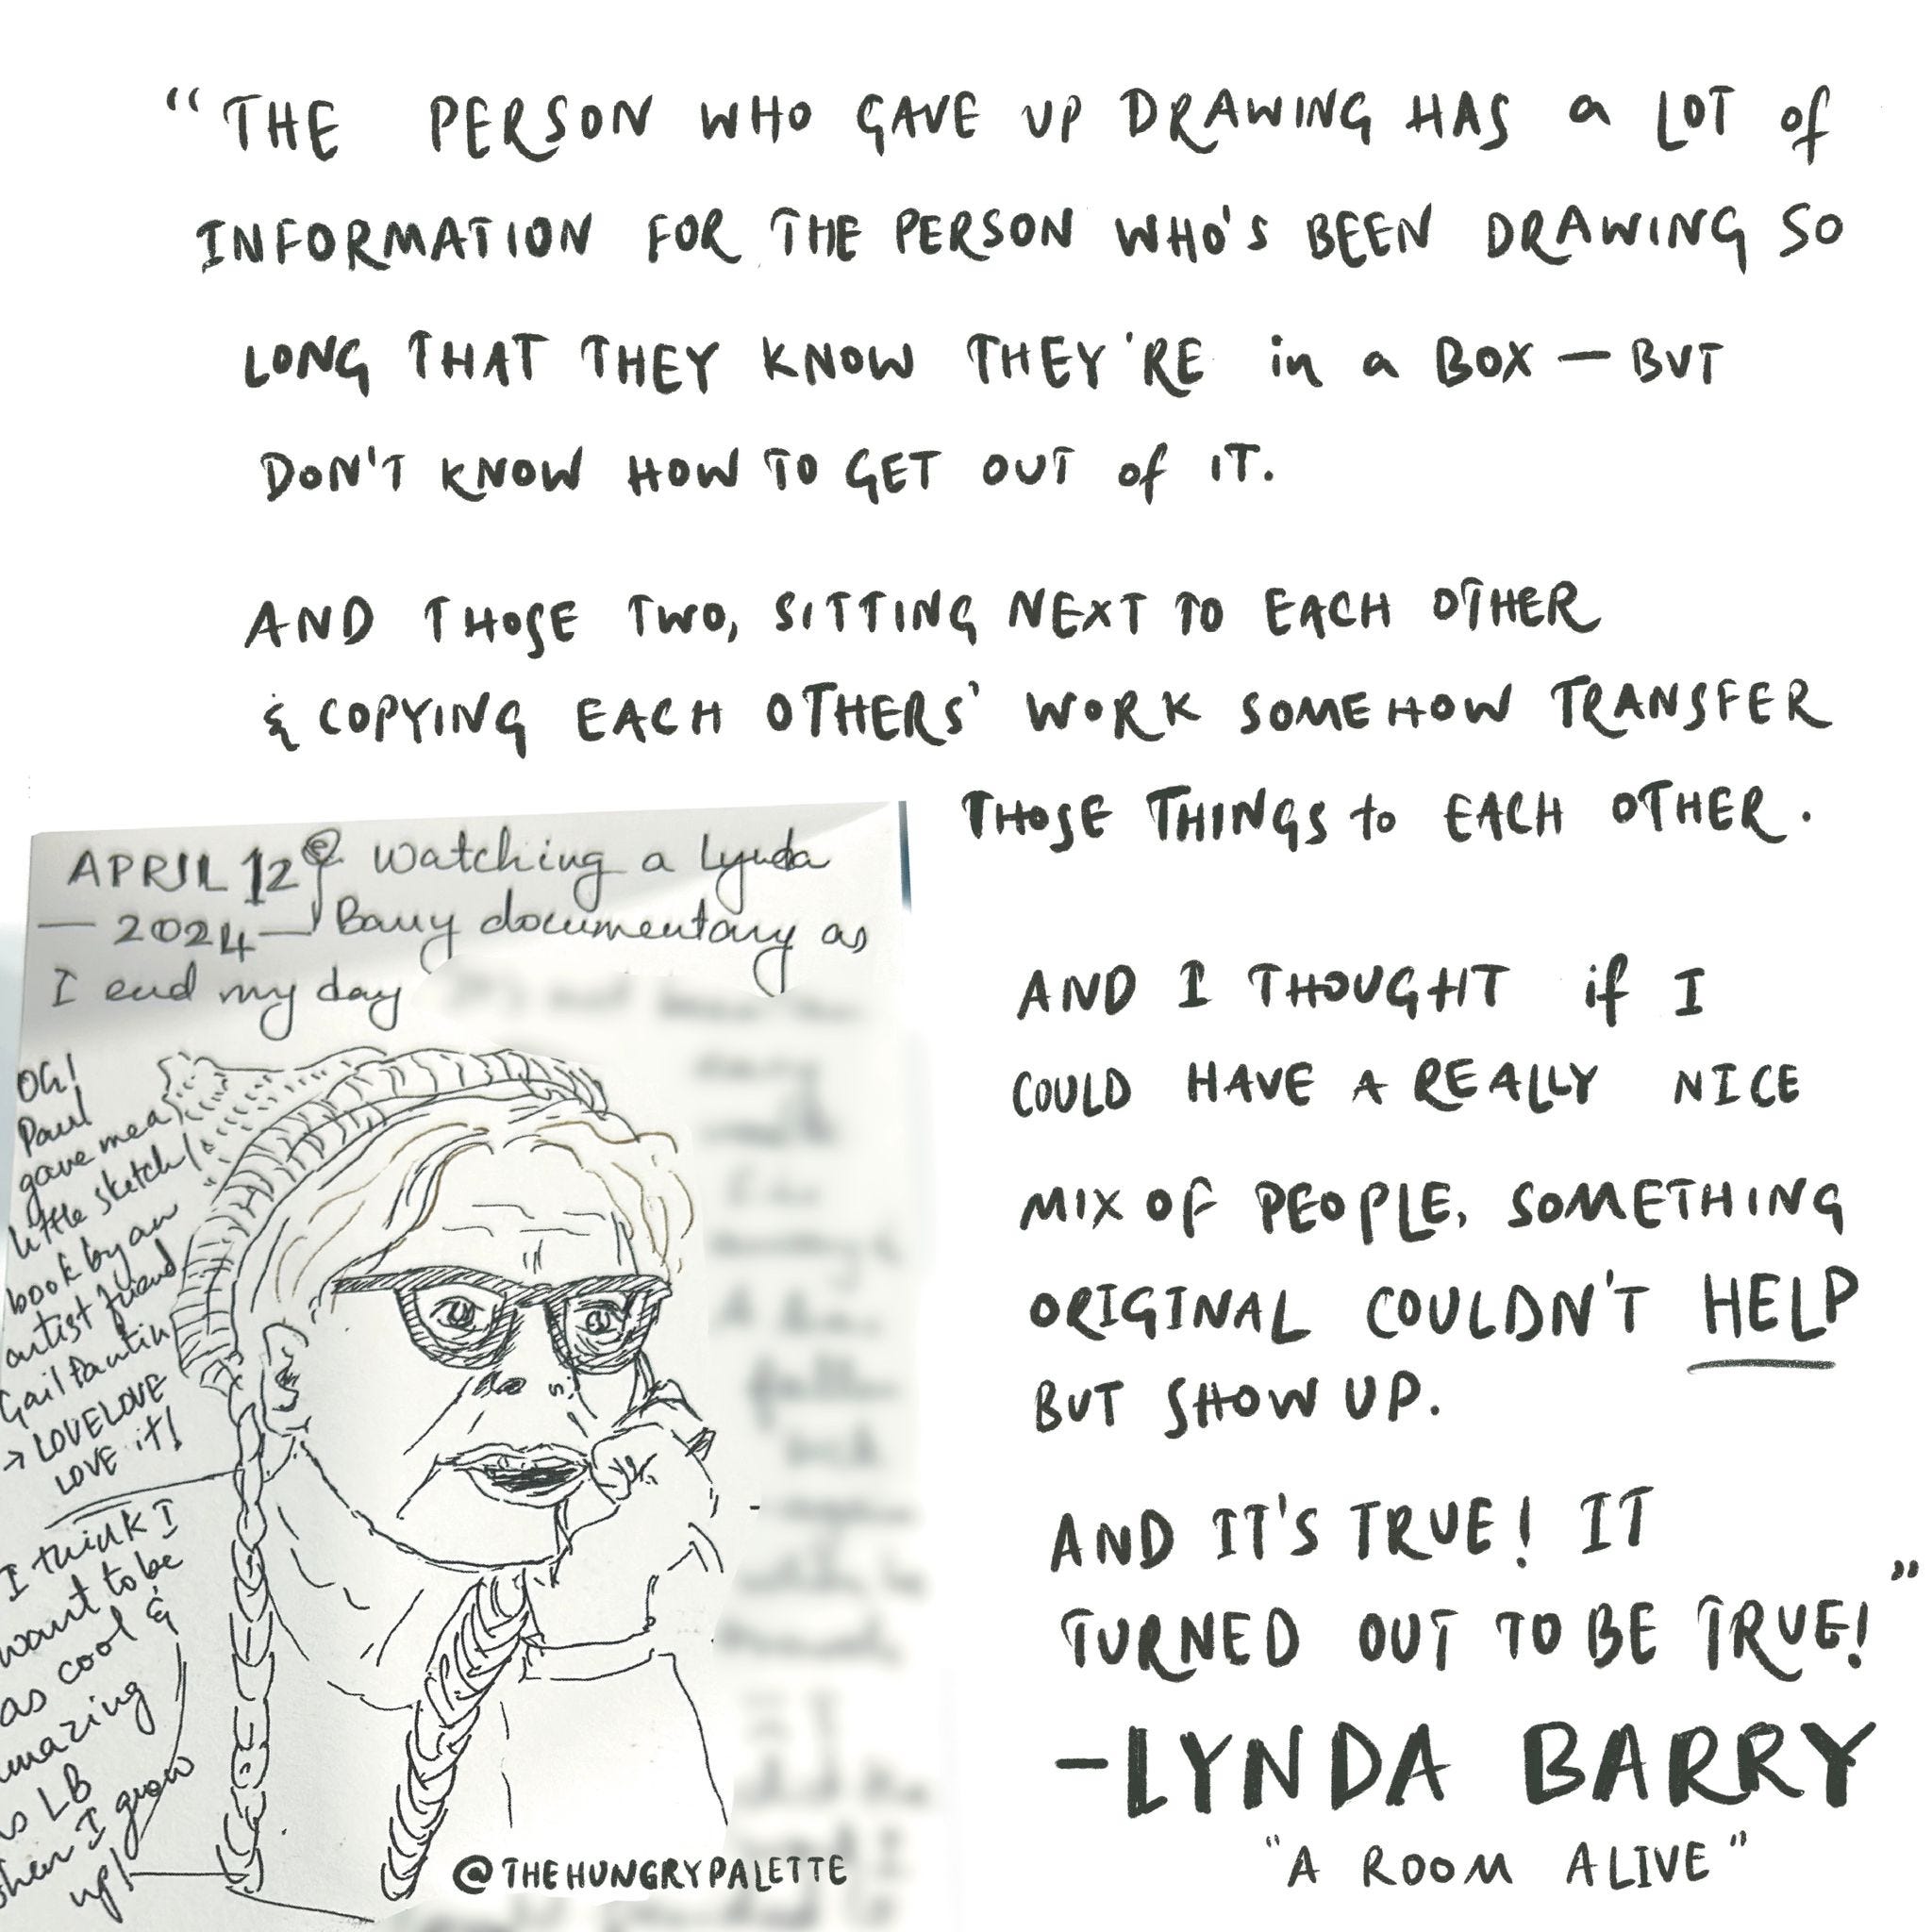 “THE PERSON WHO GAVE UP DRAWING HAS a LOT of
INFORMATION FOR THE PERSON WHO'S BEEN DRAWING SO
LONG THAT THEY KNOW THEY'RE in a BOX — BUT
DON'T KNOW HOW TO GET OUT of IT.
AND THOSE TWO, SITTING NEXT TO EACH OTHER
& COPYING EACH OTHERS' WORK SOMEHOW TRANSFER
THOSE THINGS to EACH OTHER.
AND I THOUGHT if I
COULD HAVE A REALLY NICE
MIX OF PEOPLE, SOMETHING
ORIGINAL COULDN'T HELP
BUT SHOW UP.
AND IT'S TRUE! IT
TURNED OUT TO BE TRUE!”
-LYNDA BARRY
"A ROOM ALIVE"
APRIL 12 @ Watching a Lynda
— 2024 — Barry documentary as
I end my day
Oh!
Paul
gave me a
little sketch
book by an
artist friend
Gail
→ LOVELOVE
LOVE it!
I think I
want to be
as cool &
amazing
as LB
when I grow
up!
@THEHUNGRYPALETTE